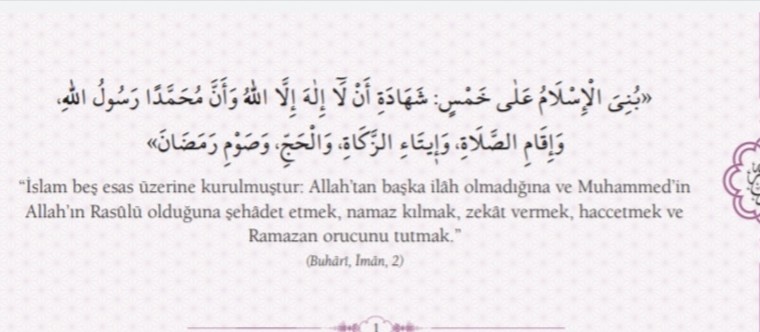 «بُنِيَ الْإِسْلَامُ عَلٰى خَمْسٍ: شَهَادَةِ أَنْ لَٓا إِلٰهَ إِلَّا اللّٰهُ وَأَنَّ مُحَمَّدًا رَسُولُ اللّٰهِ،
وَإِقَامِ الصَّلَاةِ، وَإِيتَاءِ الزَّكَاةِ، وَالْحَجِّ، وَصَوْمِ رَمَضَانَ»
“İslam beş esas üzerine kurulmuştur: Allah’tan başka ilâh olmadığına ve Muhammed’in
Allah’ın Rasûlü olduğuna şehâdet etmek, namaz kılmak, zekât vermek, haccetmek ve
Ramazan orucunu tutmak.”
(Buhârî, Îmân, 2)
1